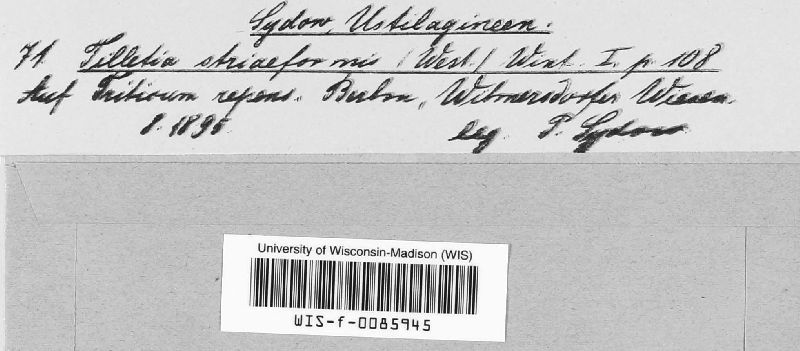 Sydow, Ustilagineen.
71. Tilletia striaeformis (West.) Wint. I. p. 108
Auf Triticum repens. Berlin, Wilmersdorfer Wiesen.
leg. P. Sydow
University of Wisconsin-Madison (WIS)
WIS-f-0085945